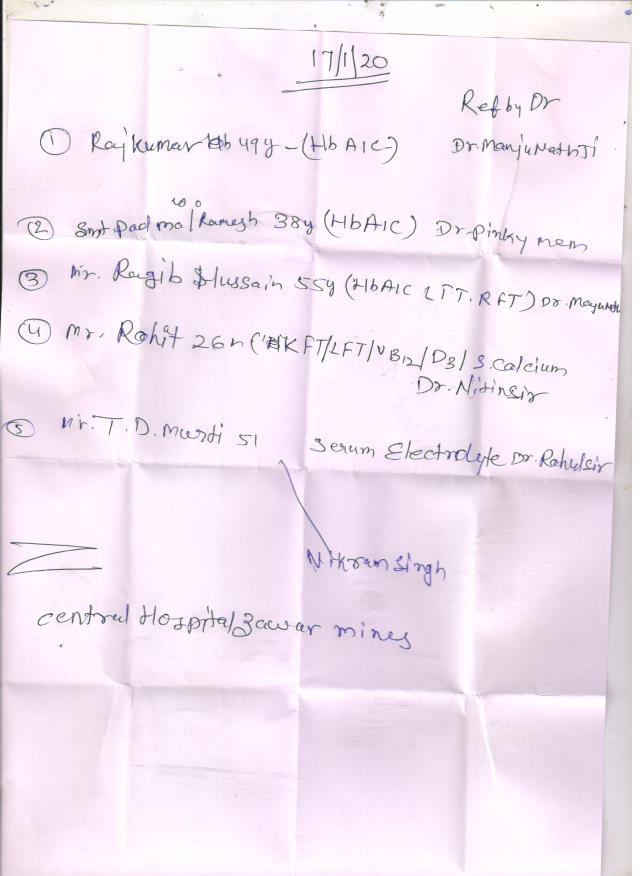 17/1/20
Ref by Dr
① Rajkumar 49y - (HbA1C) Dr.ManjuNathJi
w/o
② Smt Padma / Ramesh 38y (HbA1C) Dr Pinky mem
③ Mr. Ragib Hussain 55y (HbA1C LFT. RFT) Dr. Mayur
④ Mr. Rohit 26 (KFT/LFT/VB12/D3/S.calcium
Dr. Nitinsir
⑤ Mr. T. D. Murti 51 Serum Electrolyte Dr. Rahulsir
Nikram Singh
central Hospital Zawar mines